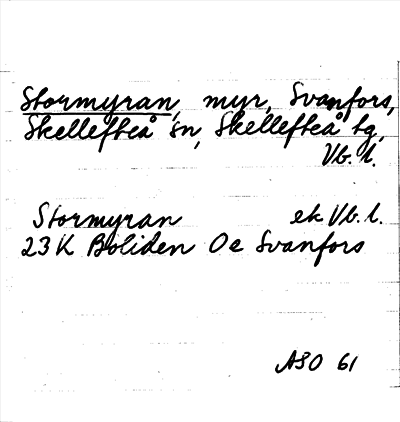 Stormyran, myr, Svanfors,
Skellefteå sn, Skellefteå tg,
Vb. l.
Stormyran ek Vb. l.
23 K Boliden Oe Svanfors
ASO 61